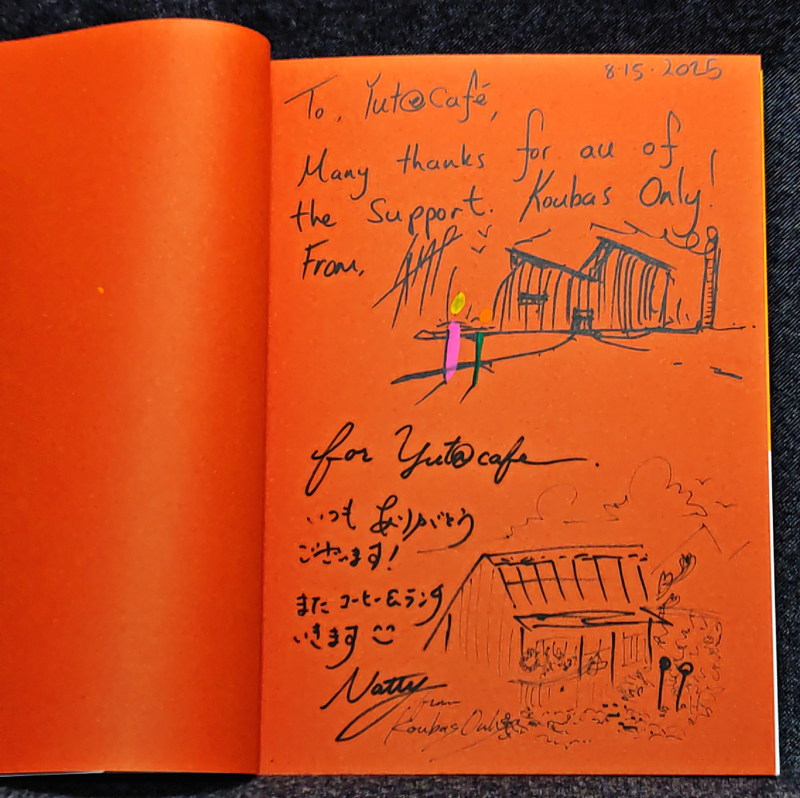 8.15.2025
To, Yut@Café,
Many thanks for all of
the Support. Koubas Only!
From,
for Yut@cafe.
いつも ありがとう
ございます!
また コーヒー&ランチ
いきます
Natty
from
Koubas Only